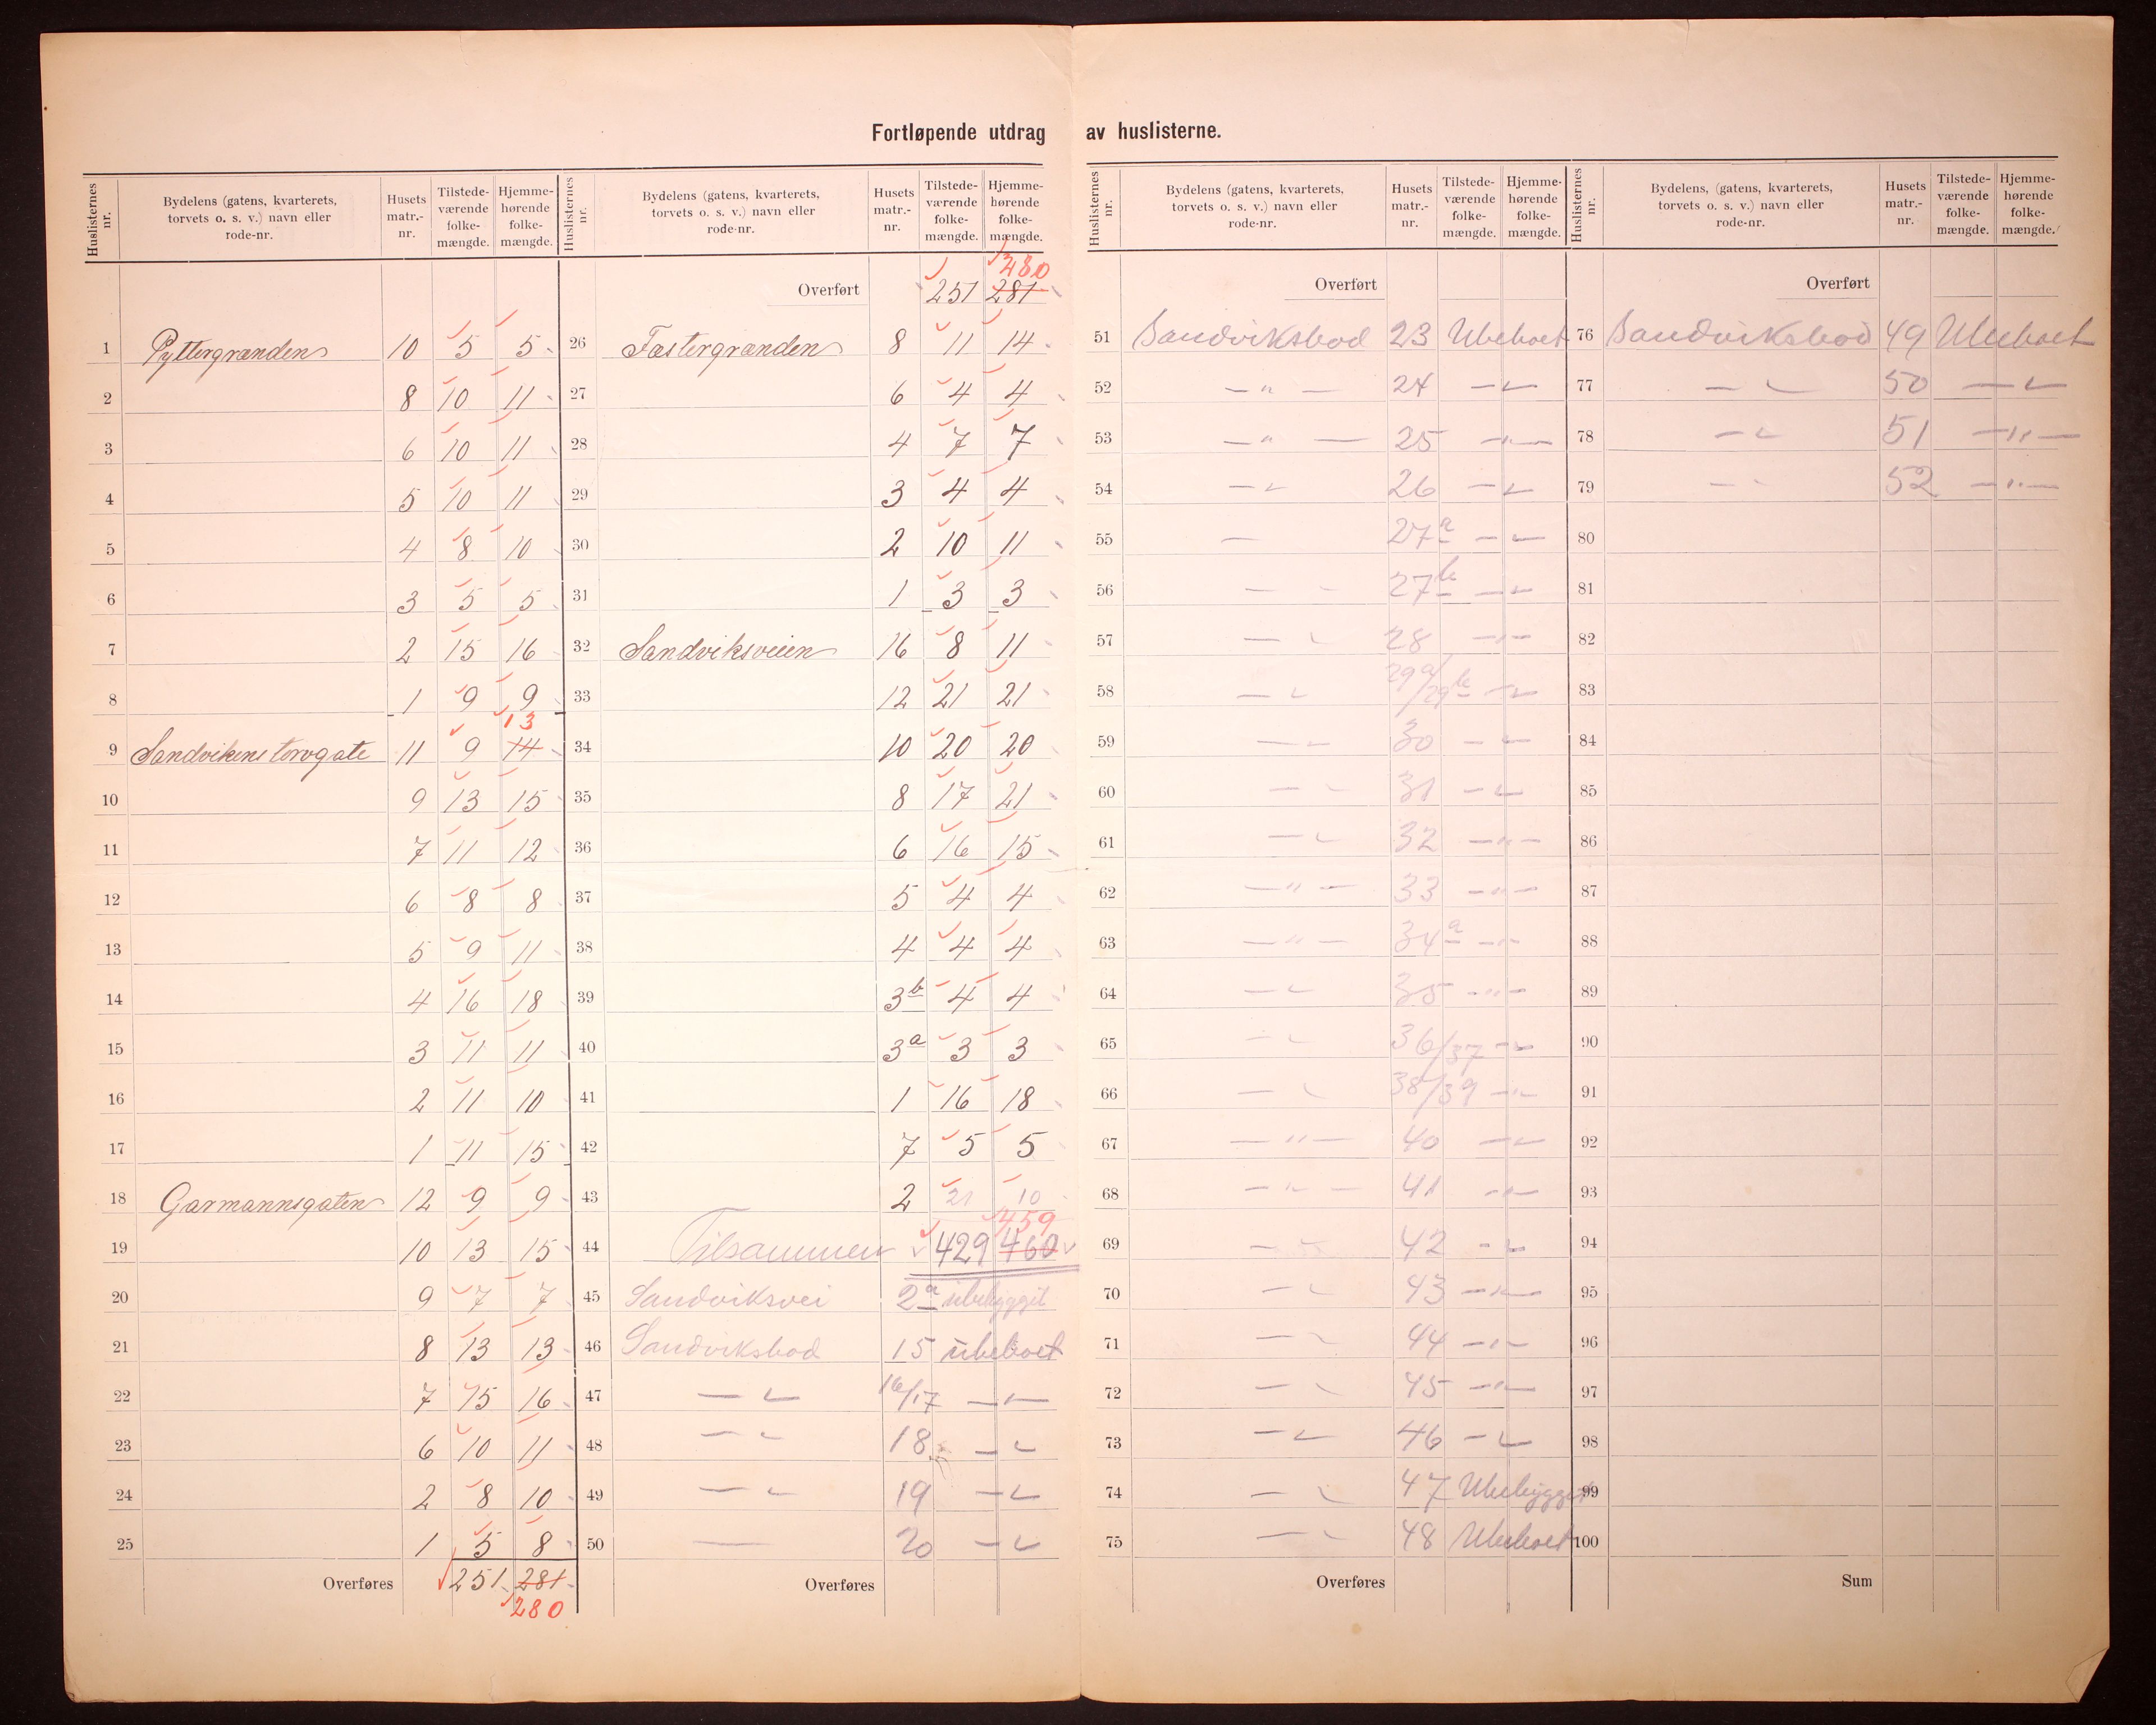 Fortløpende utdrag av huslisterne.
Huslisternes nr. | Bydelens (gatens, kvarterets, torvets o. s. v.) navn eller rode-nr. | Husets matr.-nr. | Tilstede-værende folke-mængde. | Hjemme-hørende folke-mængde.
1 Pyttergrænden 10 5 5
2 8 10 11
3 6 10 11
4 5 10 11
5 4 8 10
6 3 5 5
7 2 15 16
8 1 9 9
9 Sandvikens torvgate 11 9 14 13
10 9 13 15
11 7 11 12
12 6 8 8
13 5 9 11
14 4 16 18
15 3 11 11
16 2 11 10
17 1 11 15
18 Garmannsgaten 12 9 9
19 10 13 15
20 9 7 7
21 8 13 13
22 7 15 16
23 6 10 11
24 2 8 10
25 1 5 8
Overføres 251 281
280
Huslisternes nr. | Bydelens (gatens, kvarterets, torvets o. s. v.) navn eller rode-nr. | Husets matr.-nr. | Tilstede-værende folke-mængde. | Hjemme-hørende folke-mængde.
280
Overført 251 281
26 Fastergrænden 8 11 14
27 6 4 4
28 4 7 7
29 3 4 4
30 2 10 11
31 1 3 3
32 Sandviksveien 16 8 11
33 12 21 21
34 10 20 20
35 8 17 21
36 6 16 15
37 5 4 4
38 4 4 4
39 3b 4 4
40 3a 3 3
41 1 16 18
42 7 5 5
43 2 21 10
459
44 Tilsammen 429 460
45 Sandviksvei 2a ubebygget
46 Sandviksbod 15 ubeboet
47 — " 16/17 — " —
48 — " 18 — "
49 — " 19 — "
50 — 20 — "
Overføres
Huslisternes nr. | Bydelens (gatens, kvarterets, torvets o. s. v.) navn eller rode-nr. | Husets matr.-nr. | Tilstede-værende folke-mængde. | Hjemme-hørende folke-mængde.
Overført
51 Sandviksbod 23 Ubeboet
52 — " — 24 — "
53 — " — 25 — " —
54 — " 26 — "
55 — 27a — "
56 — " 27b — "
57 — " 28 — " —
58 — " 29a/29b — "
59 — " 30 — "
60 — " 31 — "
61 — " 32 — " —
62 — " — 33 — " —
63 — " — 34a — " —
64 — " 35 — " —
65 — " 36/37 — "
66 — " 38/39 — " —
67 — " — 40 — "
68 — " — 41 — " —
69 — " 42 — "
70 — " 43 — " —
71 — " 44 — " —
72 — " 45 — " —
73 — " 46 — "
74 — " 47 Ubebygget
75 — " 48 Ubeboet
Overføres
Huslisternes nr. | Bydelens, (gatens, kvarterets, torvets o. s. v.) navn eller rode-nr. | Husets matr.-nr. | Tilstede-værende folke-mængde. | Hjemme-hørende folke-mængde.
Overført
76 Sandviksbod 49 Ubeboet
77 — " 50 — "
78 — " 51 — " —
79 — " 52 — " —
80
81
82
83
84
85
86
87
88
89
90
91
92
93
94
95
96
97
98
99
100
Sum